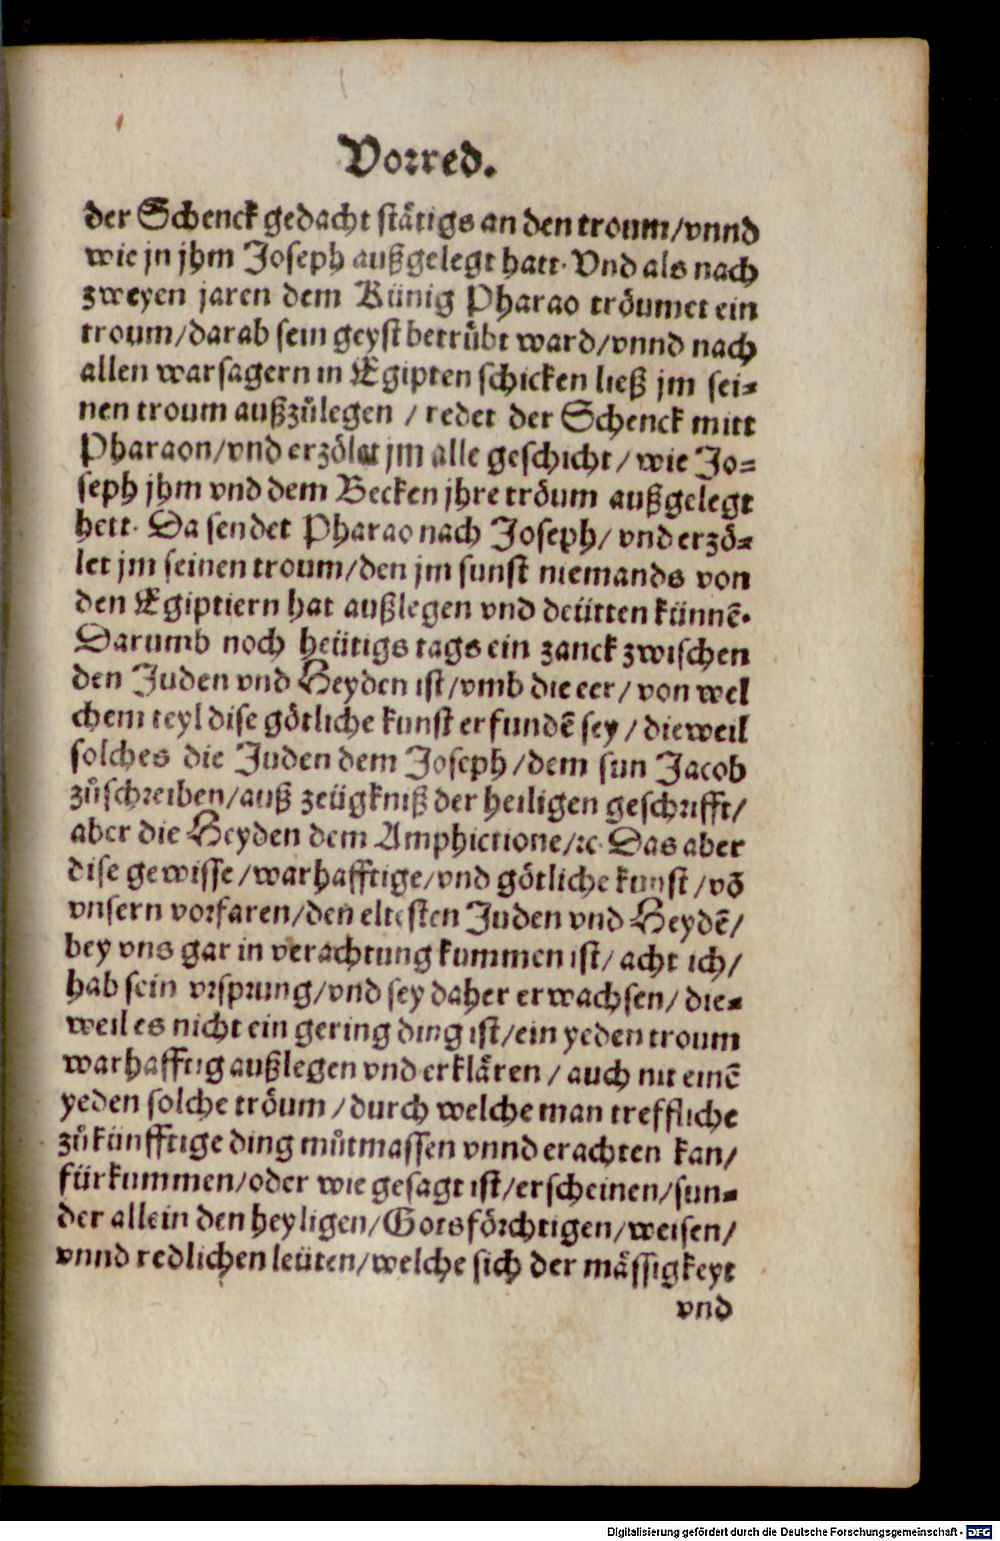 Vorred.
der Schenck gedacht stätigs an den troum/vnnd
wie jn jhm Joseph außgelegt hatt. Vnd als nach
zweyen jaren dem Künig Pharao tröumet ein
troum/darab sein geyst betrübt ward/vnnd nach
allen warsagern in Egipten schicken ließ jm sei-
nen troum außzůlegen / redet der Schenck mitt
Pharaon/vnd erzölet jm alle geschicht / wie Jo-
seph jhm vnd dem Becken jhre tröum außgelegt
hett. Da sendet Pharao nach Joseph/ vnd erzö-
let jm seinen troum/den jm sunst niemands von
den Egiptiern hat außlegen vnd deütten künnē.
Darumb noch heütigs tags ein zanck zwischen
den Juden vnd Heyden ist/vmb die eer/ von wel
chem teyl dise götliche kunst erfundē sey / dieweil
solches die Juden dem Joseph/dem sun Jacob
zůschreiben/auß zeügkniß der heiligen geschrifft/
aber die Heyden dem Amphictione/ꝛc. Das aber
dise gewisse/warhafftige/vnd götliche kunst/võ
vnsern vorfaren/den eltesten Juden vnd Heydē/
bey vns gar in verachtung kummen ist/ acht ich/
hab sein vrsprung/vnd sey daher erwachsen/ die-
weil es nicht ein gering ding ist/ein yeden troum
warhafftig außlegen vnd erklären / auch nit einē
yeden solche tröum / durch welche man treffliche
zůkünfftige ding můtmassen vnnd erachten kan/
fürkummen/oder wie gesagt ist/erscheinen/sun-
der allein den heyligen/Gotsförchtigen/weisen/
vnnd redlichen leüten/welche sich der mässigkeyt
vnd
Digitalisierung gefördert durch die Deutsche Forschungsgemeinschaft - DFG